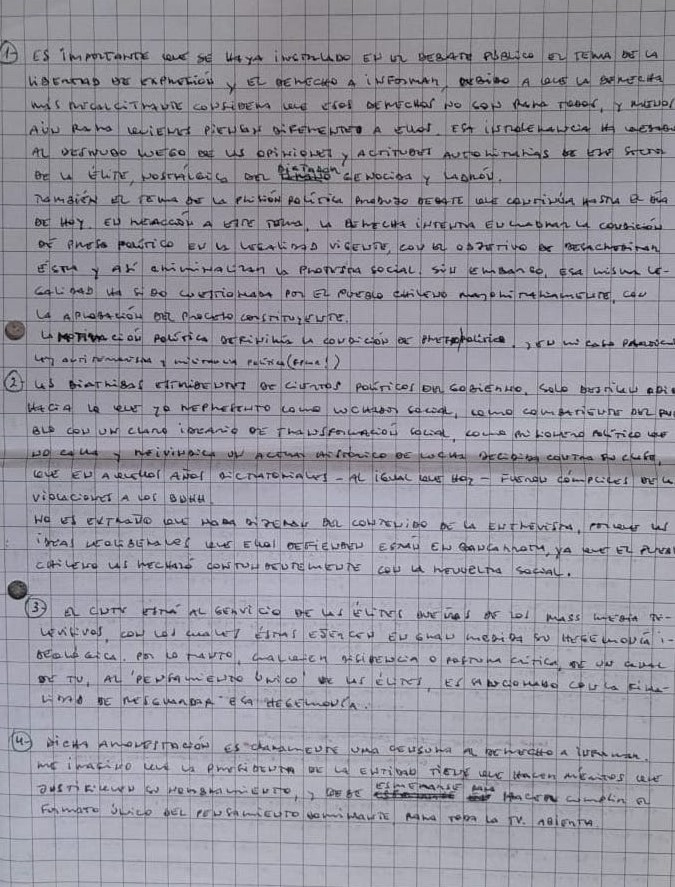 1- ES IMPORTANTE QUE SE HAYA INSTALADO EN EL DEBATE PÚBLICO EL TEMA DE LA
LIBERTAD DE EXPRESIÓN Y EL DERECHO A INFORMAR, DEBIDO A QUE LA DERECHA
MÁS RECALCITRANTE CONSIDERA QUE ESOS DERECHOS NO SON PARA TODOS, Y MENOS
AÚN PARA QUIENES PIENSAN DIFERENTE A ELLOS. ESA INTOLERANCIA HA QUEDADO
AL DESNUDO LUEGO DE LAS OPINIONES Y ACTITUDES AUTORITARIAS DE ESE SECTOR
DE LA ÉLITE, NOSTÁLGICA DEL DICTADOR GENOCIDA Y LADRÓN.
TAMBIÉN EL TEMA DE LA PRISIÓN POLÍTICA PRODUJO DEBATE QUE CONTINÚA HASTA EL DÍA
DE HOY. EN REACCIÓN A ESTE TEMA, LA DERECHA INTENTA ENCUADRAR LA CONDICIÓN
DE PRESO POLÍTICO EN LA LEGALIDAD VIGENTE, CON EL OBJETIVO DE DESACREDITAR
ÉSTA Y ASÍ CRIMINALIZAR LA PROTESTA SOCIAL. SIN EMBARGO, ESA MISMA LE-
GALIDAD HA SIDO CUESTIONADA POR EL PUEBLO CHILENO MAYORITARIAMENTE, CON
LA APROBACIÓN DEL PROCESO CONSTITUYENTE.
LA MOTIVACIÓN POLÍTICA DEFINIRÍA LA CONDICIÓN DE PRESO POLÍTICO, Y EN MI CASO
MI MILITANCIA POLÍTICA (FPMR)
2 LAS DIATRIBAS ESTRIDENTES DE CIERTOS POLÍTICOS DEL GOBIERNO, SOLO DESTILEN ODIO
HACIA LO QUE YO REPRESENTO COMO LUCHADOR SOCIAL, COMO COMBATIENTE DEL PUE
BLO CON UN CLARO IDEARIO DE TRANSFORMACIÓN SOCIAL, COMO PRISIONERO POLÍTICO QUE
NO CALLA Y REIVINDICA UN ACTUAR HISTÓRICO DE LUCHA DECIDIDA CONTRA SU CLASE,
QUE EN AQUELLOS AÑOS DICTATORIALES - AL IGUAL QUE HOY - FUERON CÓMPLICES DE LA
VIOLACIONES A LOS DDHH.
NO ES EXTRAÑO QUE NADA DIJERAN DEL CONTENIDO DE LA ENTREVISTA, PORQUE LAS
IDEAS NEOLIBERALES QUE ELLOS DEFIENDEN ESTÁN EN BANCARROTA, YA QUE EL PUEBLO
CHILENO LAS RECHAZÓ CONTUNDENTEMENTE CON LA REVUELTA SOCIAL.
3- EL CNTV ESTÁ AL SERVICIO DE LAS ÉLITES DUEÑAS DE LOS MASS MEDIA TE-
LEVISIVOS, CON LOS CUALES ÉSTAS EJERCEN EN GRAN MEDIDA SU HEGEMONÍA I-
DEOLÓGICA. POR LO TANTO, CUALQUIER DISIDENCIA O POSTURA CRÍTICA, DE UN CANAL
DE TV, AL 'PENSAMIENTO ÚNICO' DE LAS ÉLITES, ES SANCIONADO CON LA FINA-
LIDAD DE RESGUARDAR ESA HEGEMONÍA.
4- DICHA AMONESTACIÓN ES CLARAMENTE UNA CENSURA AL DERECHO A INFORMAR.
ME IMAGINO QUE LA PRESIDENTA DE LA ENTIDAD TIENE QUE HACER MÉRITOS QUE
JUSTIFIQUEN SU NOMBRAMIENTO, Y DEBE HACER CUMPLIR EL
FORMATO ÚNICO DEL PENSAMIENTO DOMINANTE, PARA TODA LA TV. ABIERTA.